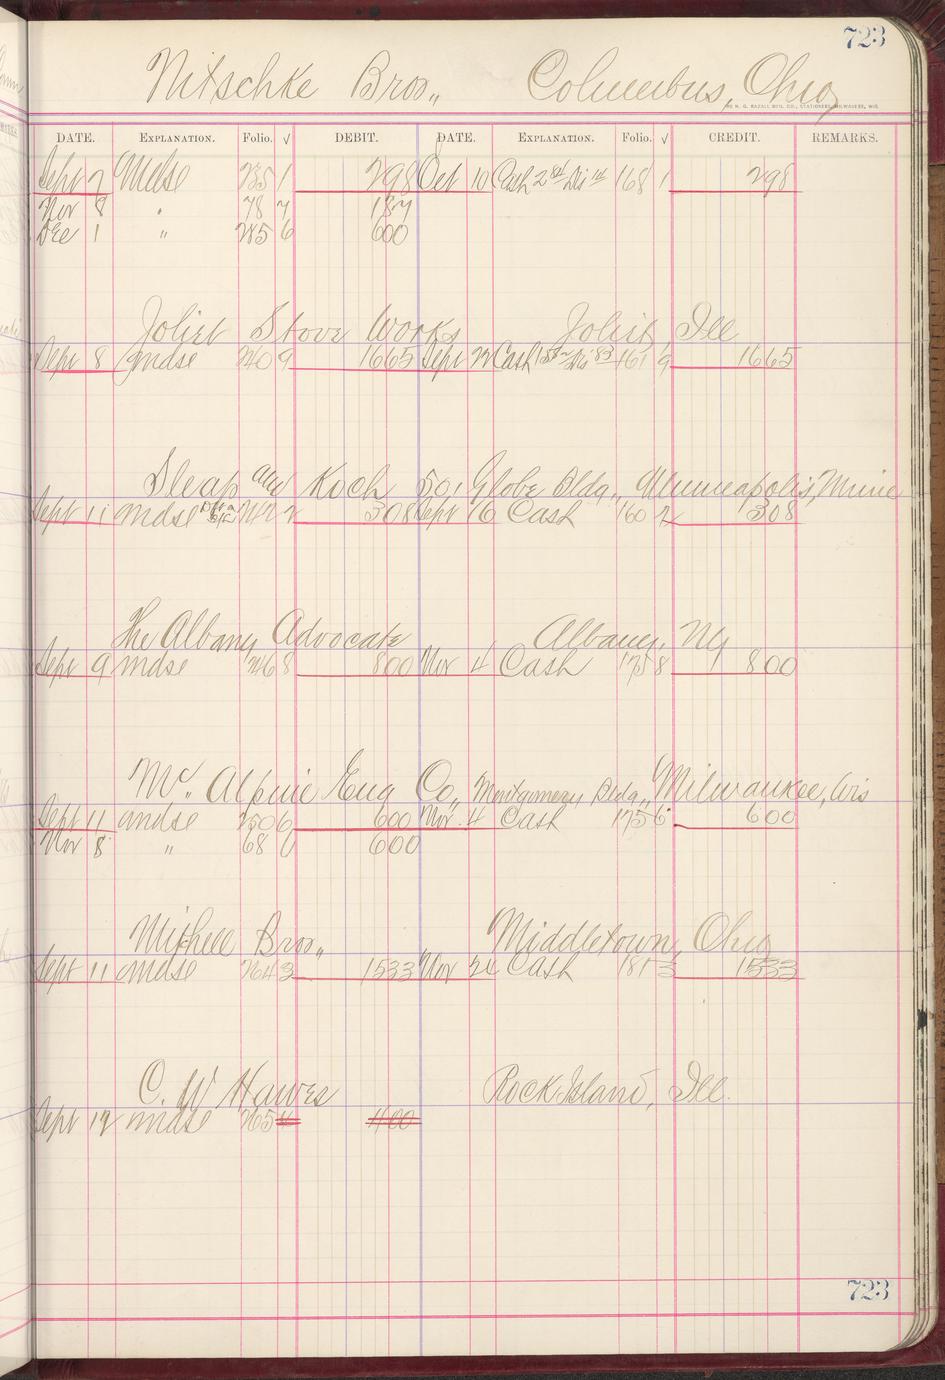 723
Nitschke Bros., Columbus, Ohio
THE H. G. RAZALL MFG. CO., STATIONERS, MILWAUKEE, WIS.
DATE. EXPLANATION. Folio. √ DEBIT. DATE. EXPLANATION. Folio. √ CREDIT. REMARKS.
Sept 2 Mdse 235 1 298 Oct 10 Cash 168 1 298
Nov 8 " 78 7 187
Dec 1 " 285 6 600
Joliet Stove Works Joliet, Ill
Sept 8 mdse 240 9 1665 Sept 22 Cash 161 9 1665
Sleap and Koch 501 Globe Bldg., Minneapolis, Minn
Sept 11 mdse 2 308 Sept 16 Cash 160 2 308
The Albany Advocate Albany, NY
Sept 9 mdse 246 8 800 Nov 4 Cash 175 8 800
Mc. Alpine Eng Co., Montgomery Bldg., Milwaukee, Wis
Sept 11 mdse 250 6 600 Nov. 4 Cash 175 6 600
Nov 8 " 68 6 600
Mitchell Bros., Middletown, Ohio
Sept 11 mdse 264 3 1533 Nov 24 Cash 181 3 1533
C. W Hawes Rock Island, Ill.
Sept 12 mdse 265 4 400
723